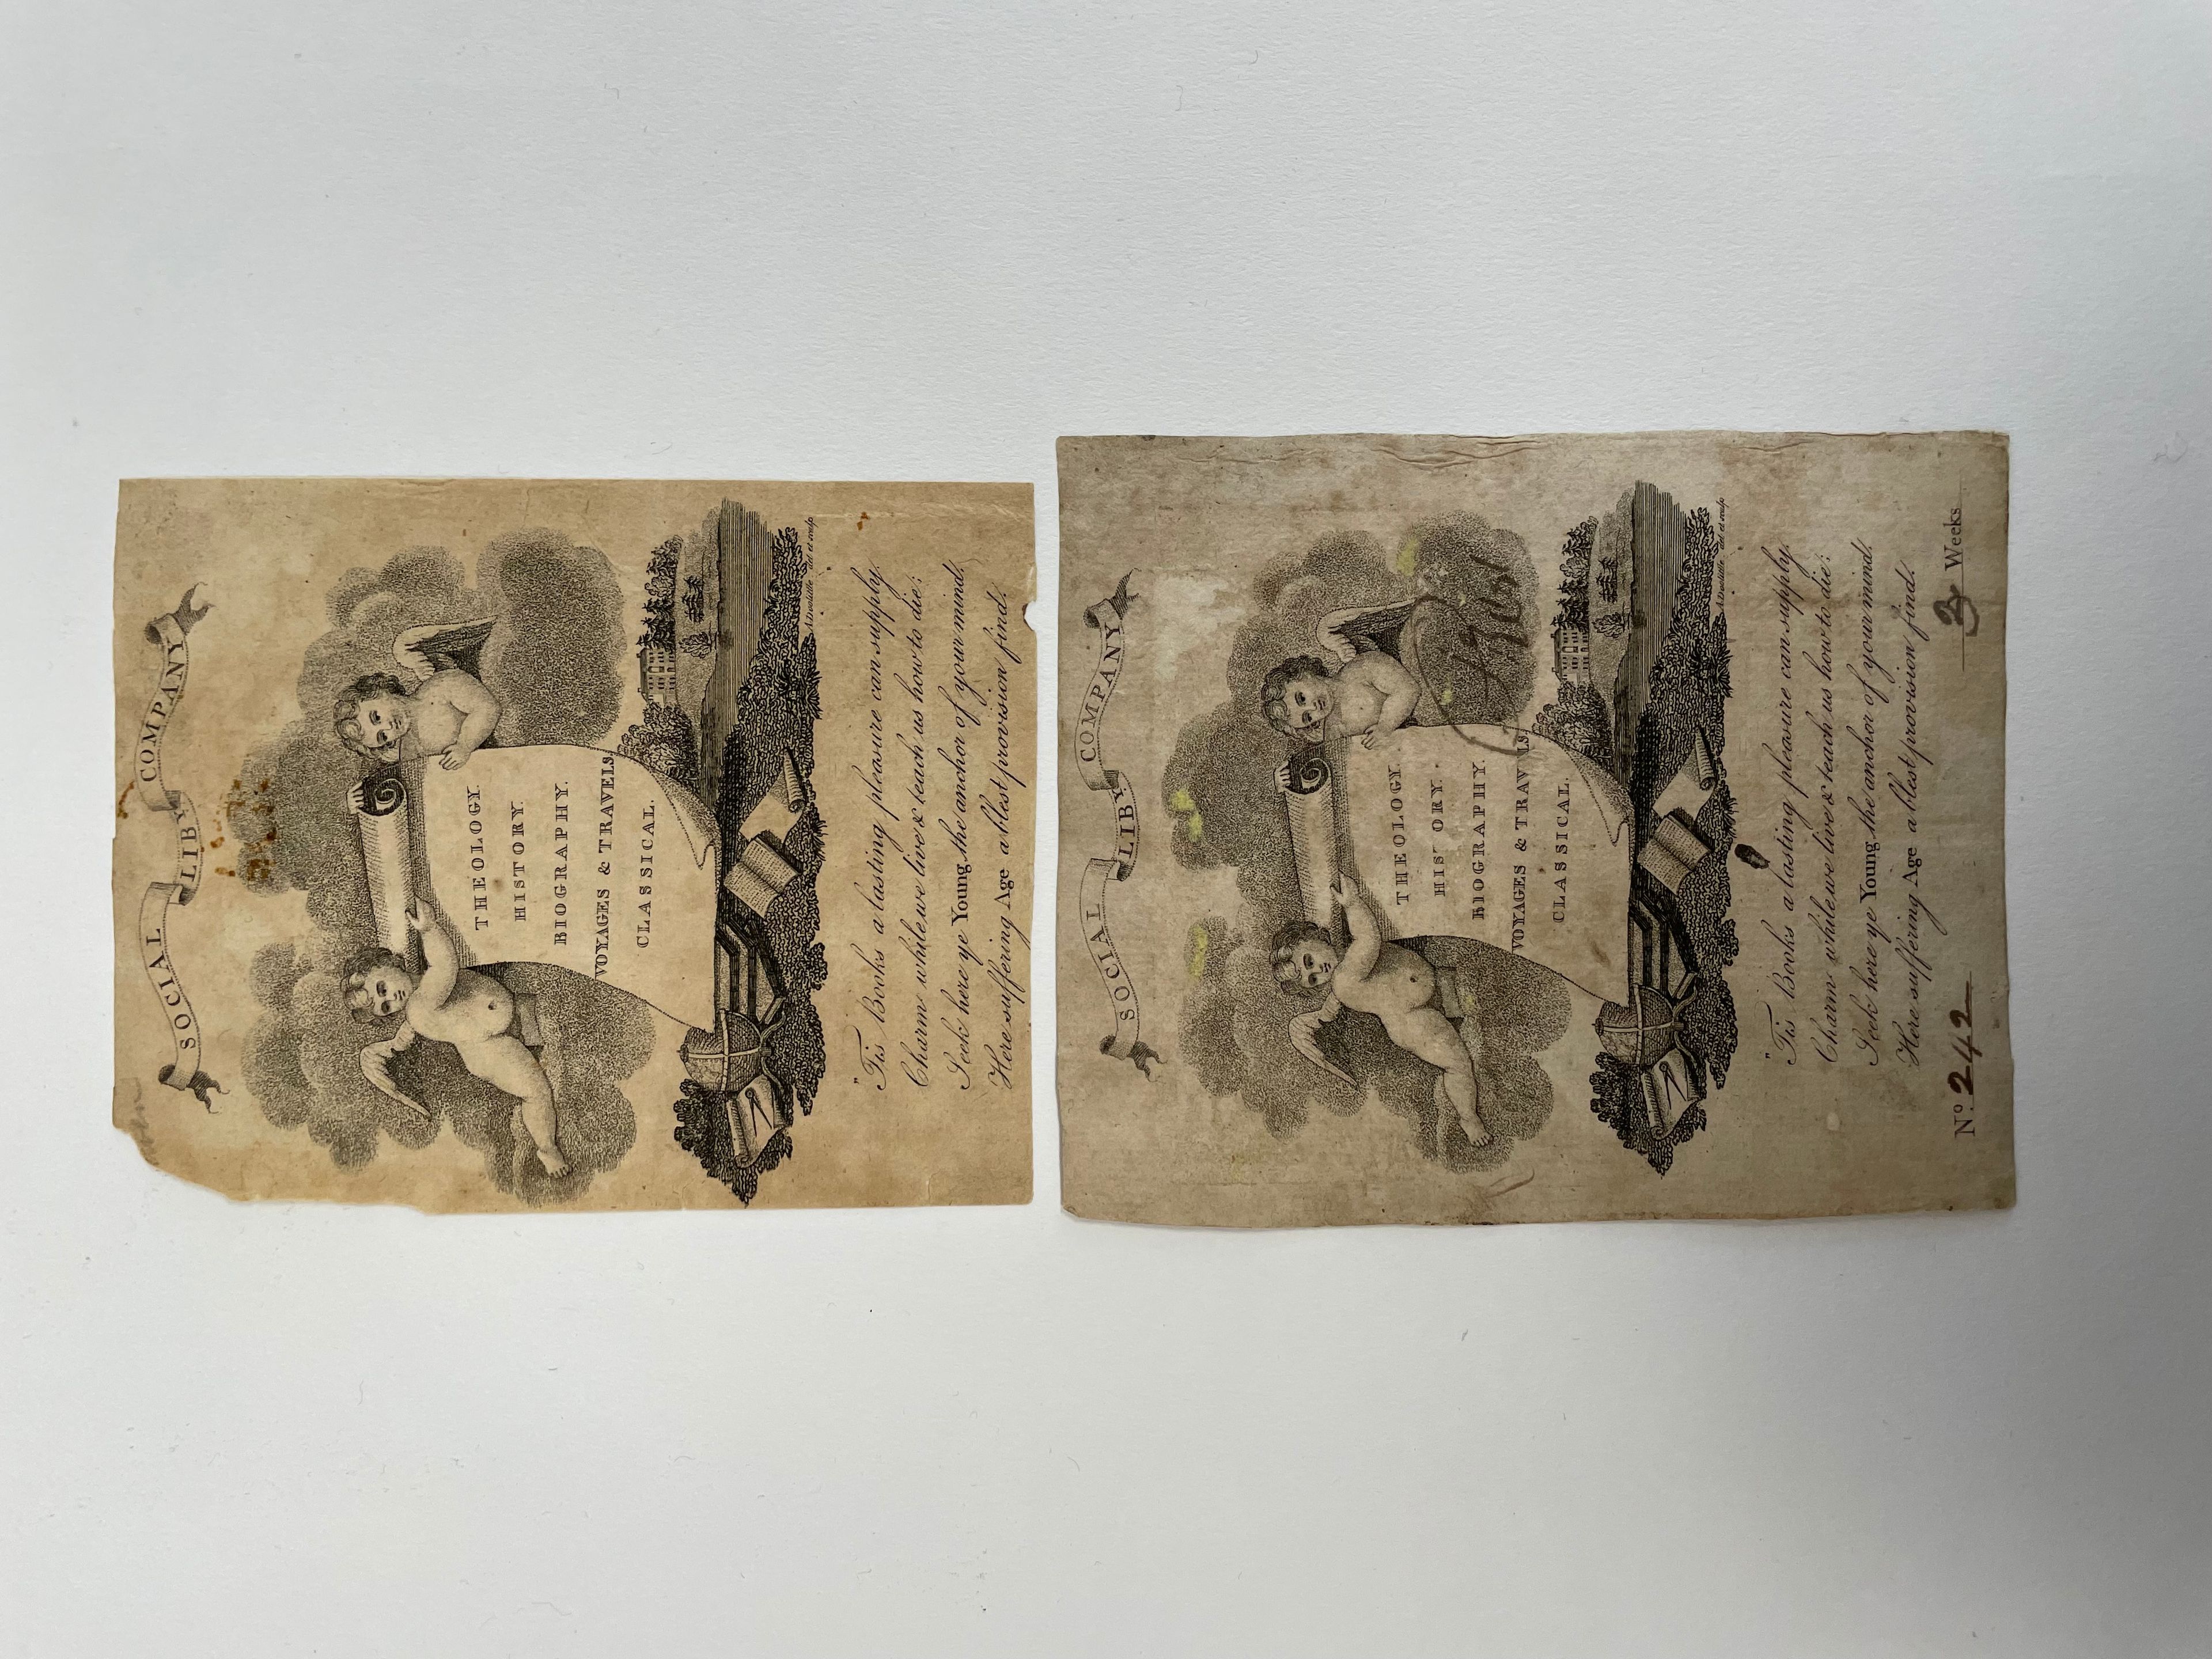 SOCIAL LIBY COMPANY
THEOLOGY.
HISTORY.
BIOGRAPHY.
VOYAGES & TRAVELS.
CLASSICAL.
del et sculp
"Tis Books a lasting pleasure can supply,
Charm while we live & teach us how to die:
Seek here ye Young the anchor of your mind,
Here suffering Age a blest provision find."
SOCIAL LIBY COMPANY
THEOLOGY.
HIST ORY.
BIOGRAPHY.
VOYAGES & TRAV LS.
CLASSICAL.
del et sculp
"Tis Books a lasting pleasure can supply,
Charm while we live & teach us how to die:
Seek here ye Young the anchor of your mind,
Here suffering Age a blest provision find.
No. 242 3 Weeks